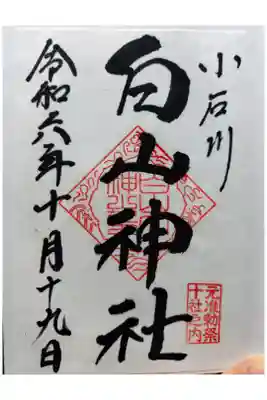 小石川
白山神社
元准勅祭
十社之内
令和六年十月十九日